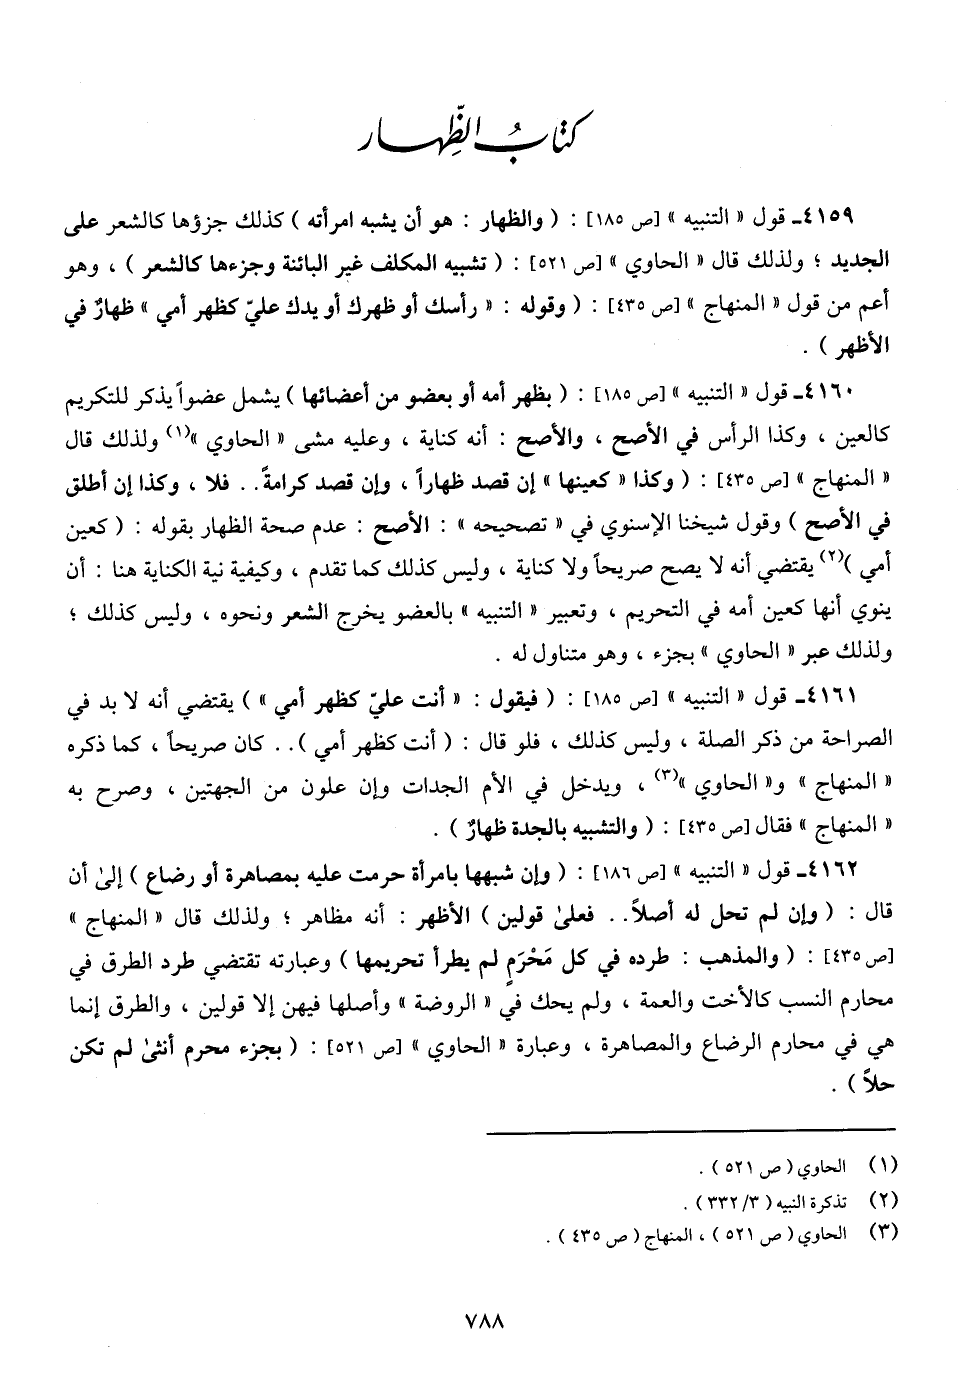 كتاب الظِّهار
٤١٥٩ـ قول « التنبيه » [ص ١٨٥] : ( والظهار : هو أن يشبه امرأته ) كذلك جزؤها كالشعر على
الجديد ؛ ولذلك قال « الحاوي » [ص ٥٢١] : ( تشبيه المكلف غير البائنة وجزءها كالشعر ) ، وهو
أعم من قول « المنهاج » [ص ٤٣٥] : ( وقوله : « رأسك أو ظهرك أو يدك عليّ كظهر أمي » ظهارٌ في
الأظهر ) .
٤١٦٠ـ قول « التنبيه » [ص ١٨٥] : ( بظهر أمه أو بعضو من أعضائها ) يشمل عضواً يذكر للتكريم
كالعين ، وكذا الرأس في الأصح ، والأصح : أنه كناية ، وعليه مشى « الحاوي »(١) ولذلك قال
« المنهاج » [ص ٤٣٥] : ( وكذا « كعينها » إن قصد ظهاراً ، وإن قصد كرامةً.. فلا ، وكذا إن أطلق
في الأصح ) وقول شيخنا الإسنوي في « تصحيحه » : الأصح : عدم صحة الظهار بقوله : ( كعين
أمي )(٢) يقتضي أنه لا يصح صريحاً ولا كناية ، وليس كذلك كما تقدم ، وكيفية نية الكناية هنا : أن
ينوي أنها كعين أمه في التحريم ، وتعبير « التنبيه » بالعضو يخرج الشعر ونحوه ، وليس كذلك ؛
ولذلك عبر « الحاوي » بجزء ، وهو متناول له .
٤١٦١ـ قول « التنبيه » [ص ١٨٥] : ( فيقول : « أنت عليّ كظهر أمي » ) يقتضي أنه لا بد في
الصراحة من ذكر الصلة ، وليس كذلك ، فلو قال : ( أنت كظهر أمي ).. كان صريحاً ، كما ذكره
« المنهاج » و« الحاوي »(٣) ، ويدخل في الأم الجدات وإن علون من الجهتين ، وصرح به
« المنهاج » فقال [ص ٤٣٥] : ( والتشبيه بالجدة ظهارٌ ) .
٤١٦٢ـ قول « التنبيه » [ص ١٨٦] : ( وإن شبهها بامرأة حرمت عليه بمصاهرة أو رضاع ) إلىٰ أن
قال : ( وإن لم تحل له أصلاً.. فعلىٰ قولين ) الأظهر : أنه مظاهر ؛ ولذلك قال « المنهاج »
[ص ٤٣٥] : ( والمذهب : طرده في كل مَحْرَمٍ لم يطرأ تحريمها ) وعبارته تقتضي طرد الطرق في
محارم النسب كالأخت والعمة ، ولم يحك في « الروضة » وأصلها فيهن إلا قولين ، والطرق إنما
هي في محارم الرضاع والمصاهرة ، وعبارة « الحاوي » [ص ٥٢١] : ( بجزء محرم أنثىٰ لم تكن
حلاً ) .
(١) الحاوي ( ص ٥٢١ ) .
(٢) تذكرة النبيه ( ٣/ ٣٣٢ ) .
(٣) الحاوي ( ص ٥٢١ ) ، المنهاج ( ص ٤٣٥ ) .
٧٨٨